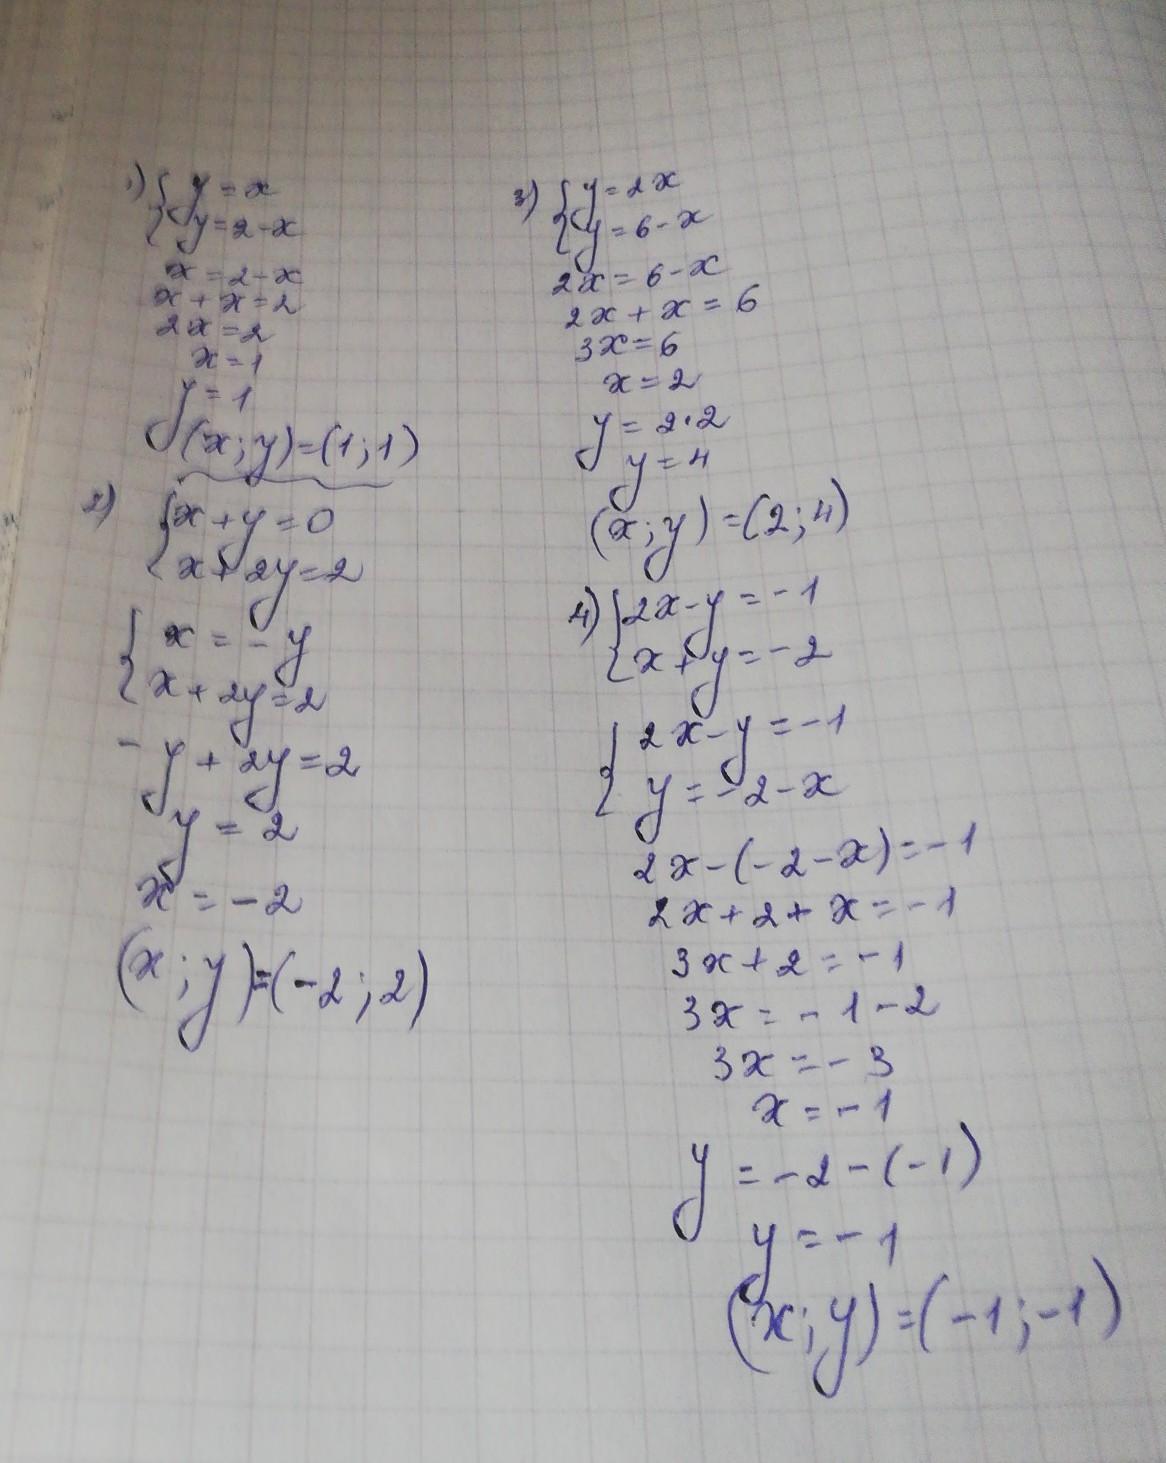 1) { y = x
y = 2 - x
x = 2 - x
x + x = 2
2x = 2
x = 1
y = 1
(x; y) = (1; 1)
2) { x + y = 0
x + 2y = 2
{ x = - y
x + 2y = 2
- y + 2y = 2
y = 2
x = - 2
(x; y) = (-2; 2)
3) { y = 2x
y = 6 - x
2x = 6 - x
2x + x = 6
3x = 6
x = 2
y = 2 · 2
y = 4
(x; y) = (2; 4)
4) { 2x - y = - 1
x + y = - 2
{ 2x - y = - 1
y = - 2 - x
2x - (- 2 - x) = - 1
2x + 2 + x = - 1
3x + 2 = - 1
3x = - 1 - 2
3x = - 3
x = - 1
y = - 2 - (- 1)
y = - 1
(x; y) = (- 1; - 1)